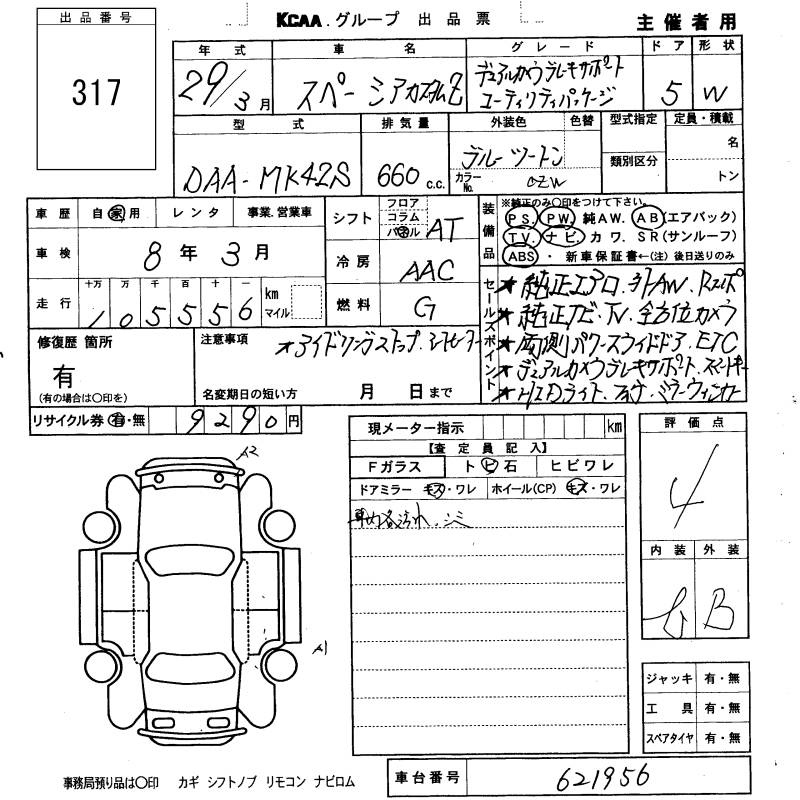 出品番号
317
KCAA.グループ 出品票
主催者用
年式 車名 グレード ドア 形状
29/3月 スペーシアカスタムZ デュアルカメラブレーキサポート
ユーティリティパッケージ 5 W
型式 排気量 外装色 色替 型式指定 定員・積載
DAA-MK42S 660 c.c. ブルーツートン
カラーNo. CZW 類別区分 名
トン
車歴 自家用 レンタ 事業.営業車
車検 8年3月
走行 十万 万 千 百 十 一 km マイル
105556
シフト フロア コラム パネル AT
冷房 AAC
燃料 G
装備品 ※純正のみ〇印をつけて下さい。
PS. PW. 純AW. AB(エアバック)
TV. ナビ. カワ. SR(サンルーフ)
ABS ・ 新車保証書←(注)後日送りのみ
セールスポイント
★純正エアロ.
★純正ナビ・TV. 全方位カメラ
★両側パワースライドドア. ETC
★デュアルカメラブレーキサポート. スマートキー
★HIDライト. ミラーウィンカー
修復歴 箇所
有
(有の場合は〇印を)
注意事項
★アイドリングストップ. シートヒーター
名変期日の短い方 月 日まで
リサイクル券 有・無 9290円
現メーター指示 km
【査定員記入】
Fガラス ト ビ 石 ヒビワレ
ドアミラー キズ・ワレ ホイール(CP) キズ・ワレ
車内各汚れ. シミ
評価点
4
内装 外装
B
A2
A1
ジャッキ 有・無
工具 有・無
スペアタイヤ 有・無
事務局預り品は〇印 カギ シフトノブ リモコン ナビロム
車台番号 621956